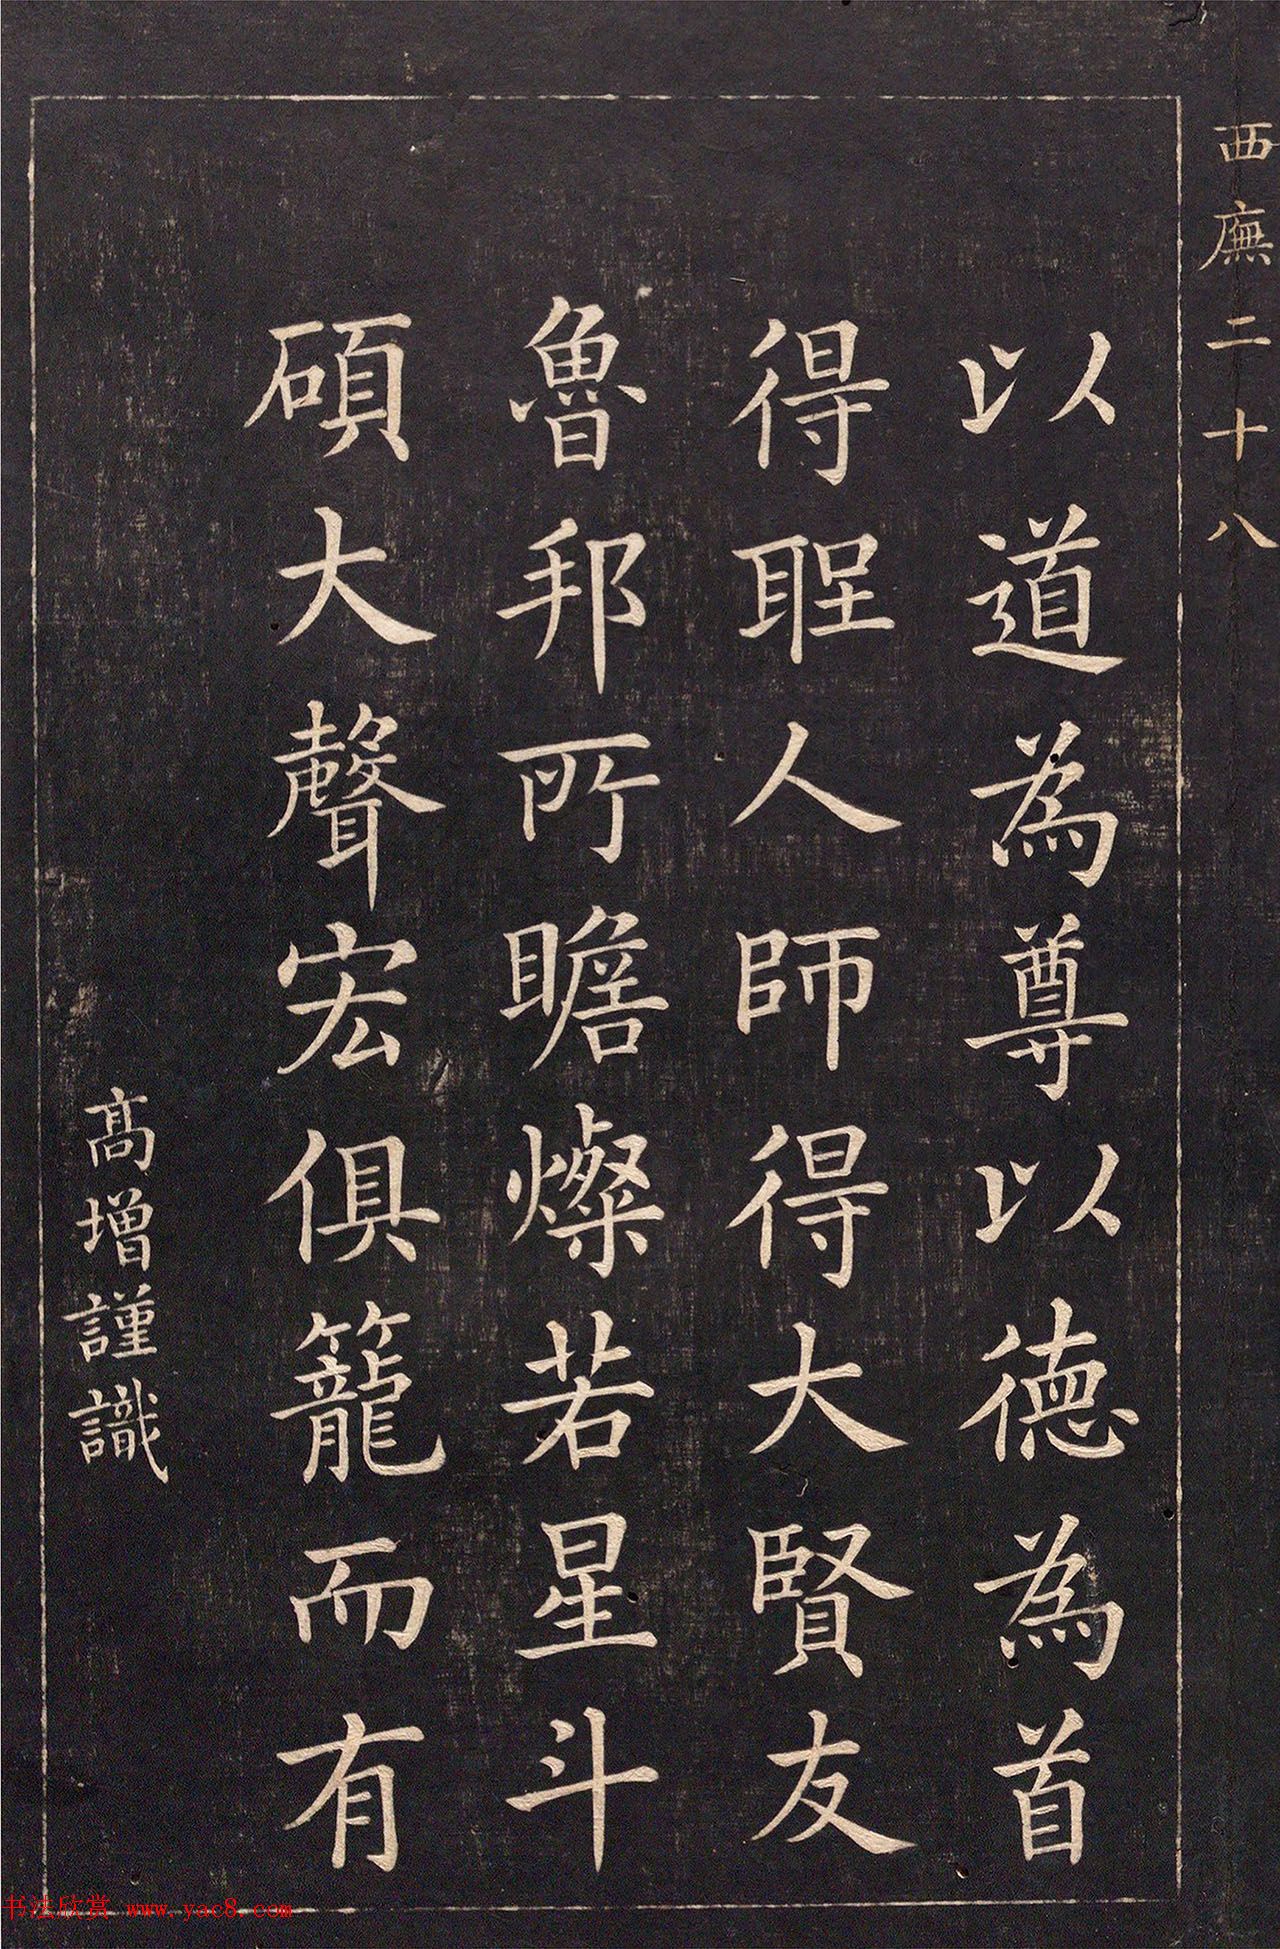 西廡二十八
以道為尊以德為首
得聖人師得大賢友
魯邦所瞻燦若星斗
碩大聲宏俱籠而有
高增謹識
书法欣赏 www.yac8.com